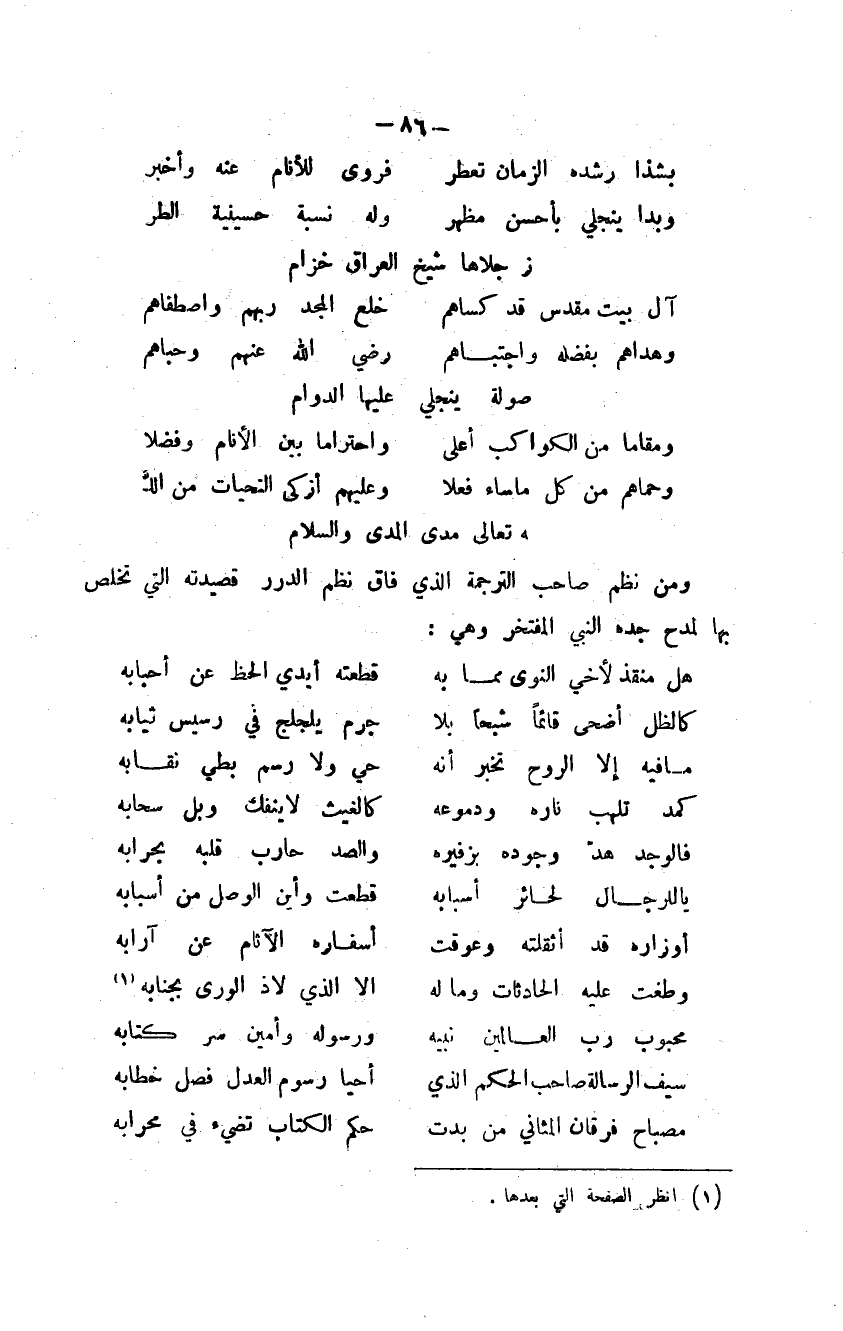 — ٨٦ —
بشذا رشده الزمان تعطر فروى للأنام عنه وأخبر
وبدا ينجلي بأحسن مظهر وله نسبة حسينية الطر
ز جلاها شيخ العراق خزام
آل بيت مقدس قد كساهم خلع المجد ربهم واصطفاهم
وهداهم بفضله واجتباهم رضي الله عنهم وحباهم
صولة ينجلي عليها الدوام
ومقاما من الكواكب أعلى واحتراما بين الأنام وفضلا
وحماهم من كل ماساء فعلا وعليهم أزكى التحيات من اللّٰ
ه تعالى مدى المدى والسلام
ومن نظم صاحب الترجمة الذي فاق نظم الدرر قصيدته التي تخلص
بها لمدح جده النبي المفتخر وهي :
هل منقذ لأخي النوى مما به قطعته أيدي الحظ عن أحبابه
كالظل أضحى قائماً شبحاً بلا جرم يلجلج في رسيس ثيابه
مافيه إلا الروح تخبر أنه حي ولا رسم بطي نقابه
كمد تلهب ناره ودموعه كالغيث لاينفك وبل سحابه
فالوجد هدّ وجوده بزفيره والصد حارب قلبه بحرابه
ياللرجال لحائر أسبابه قطعت وأين الوصل من أسبابه
أوزاره قد أثقلته وعوقت أسفاره الآثام عن آرابه
وطغت عليه الحادثات وما له الا الذي لاذ الورى بجنابه (١)
محبوب رب العالمين نبيه ورسوله وأمين سر كتابه
سيف الرسالة صاحب الحكم الذي أحيا رسوم العدل فصل خطابه
مصباح فرقان المثاني من بدت حكم الكتاب تضيء في محرابه
(١) انظر الصفحة التي بعدها .